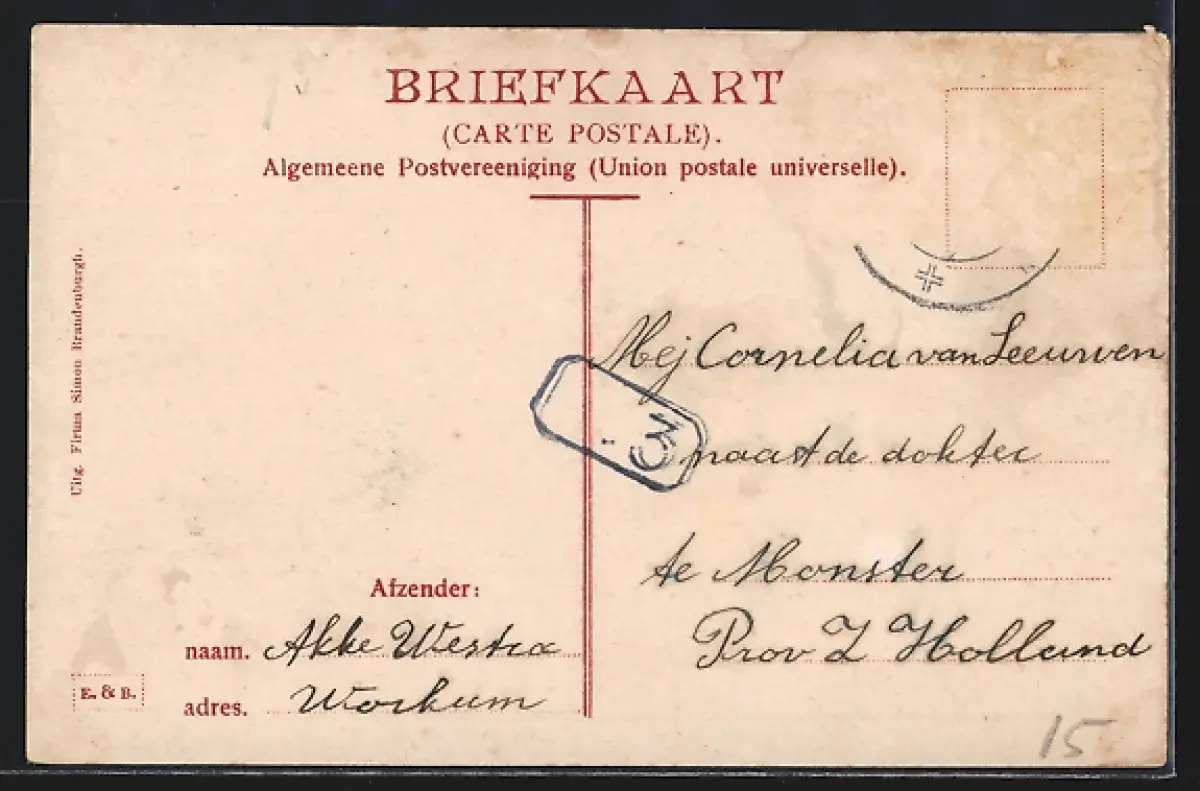 BRIEFKAART
(CARTE POSTALE).
Algemeene Postvereeniging (Union postale universelle).
Uitg. Firma Simon Brandenburgh.
Mej Cornelia van Leeuwen
naast de dokter
te Monster
Prov Z Holland
Afzender:
naam. Akke Westra
adres. Workum
E. & B.
3
15